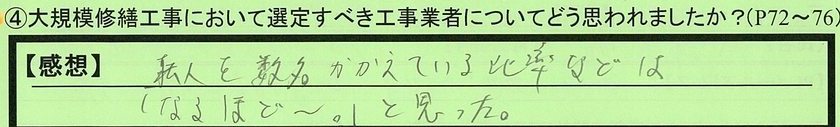 ④大規模修繕工事において選定すべき工事業者についてどう思われましたか?(P72～76)
【感想】 職人を数名かかえている比率などは
「なるほど～。」と思った。